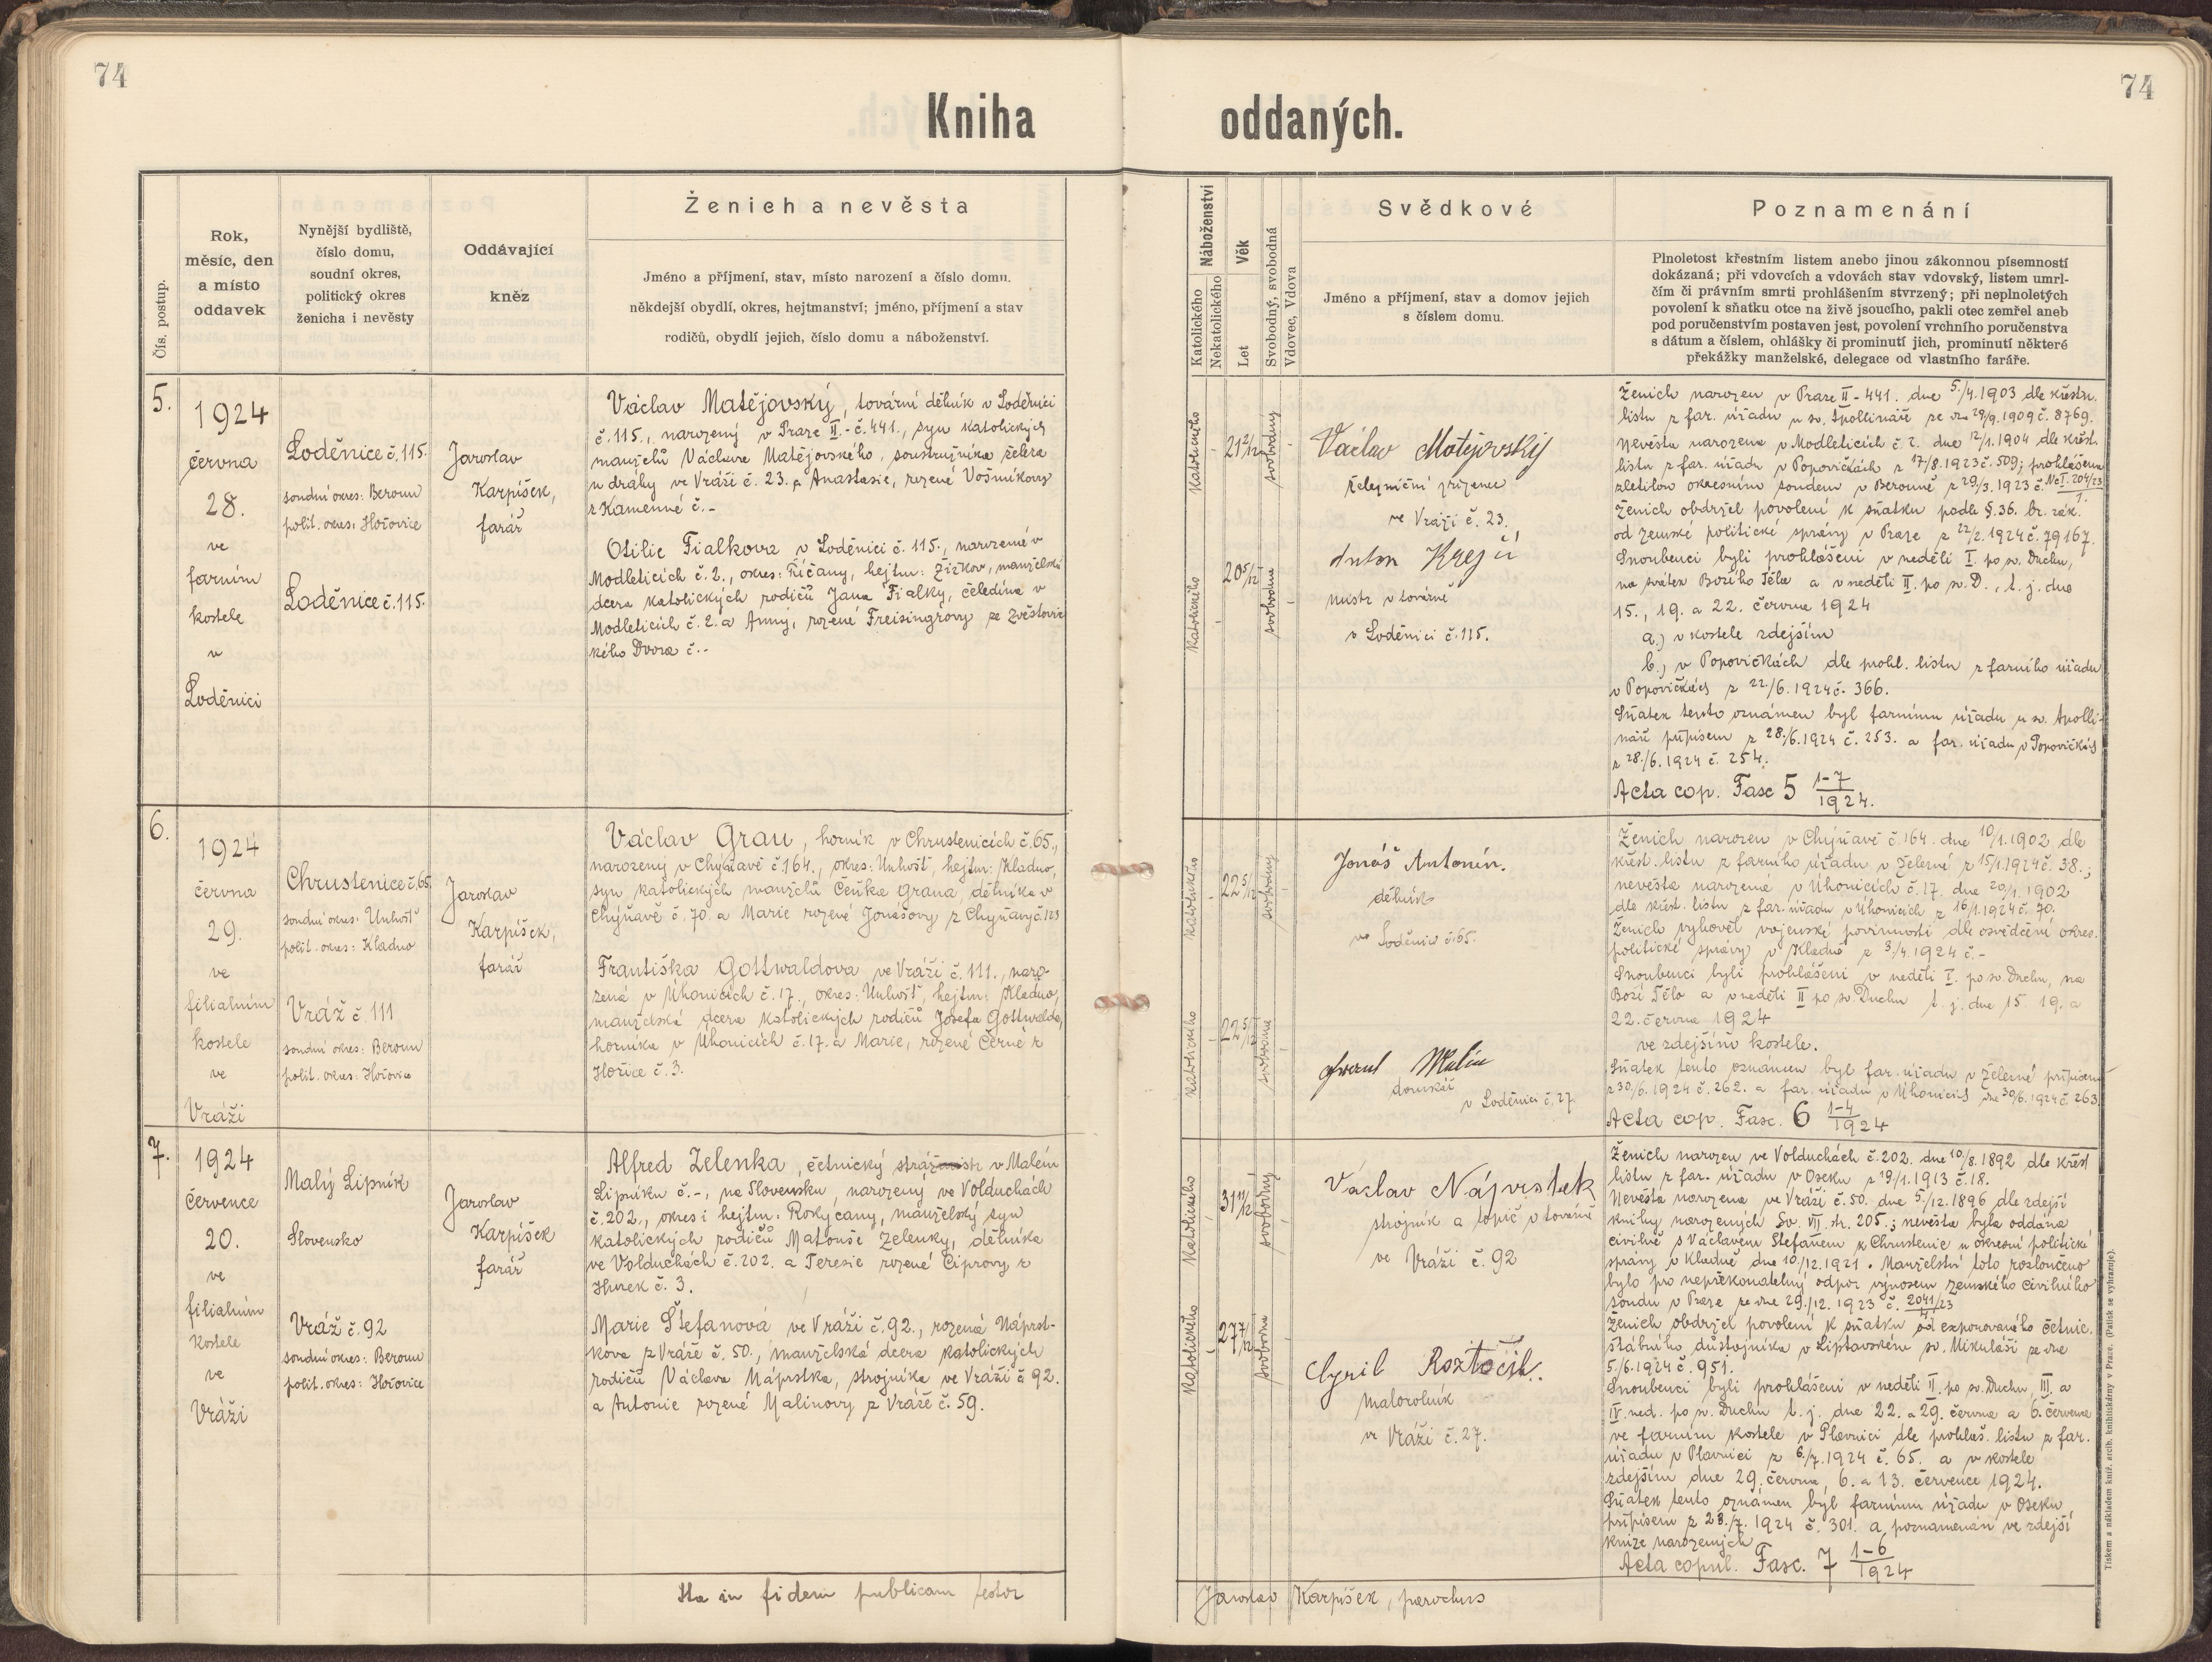 74
74
Kniha
oddaných.
Čís. postup.
Rok,
měsíc, den
a místo
oddavek
Nynější bydliště,
číslo domu,
soudní okres,
politický okres
ženicha i nevěsty
Oddávající
kněz
Ženich a nevěsta
Jméno a příjmení, stav, místo narození a číslo domu.
někdejší obydlí, okres, hejtmanství; jméno, příjmení a stav
rodičů, obydlí jejich, číslo domu a náboženství.
Náboženství
Katolického
Nekatolického
Věk
Let
Svobodný, svobodná
Vdovec, Vdova
Svědkové
Jméno a příjmení, stav a domov jejich
s číslem domu.
Poznamenání
Plnoletost křestním listem anebo jinou zákonnou písemností
dokázaná; při vdovcích a vdovách stav vdovský, listem umrl-
čím či právním smrti prohlášením stvrzený; při neplnoletých
povolení k sňatku otce na živě jsoucího, pakli otec zemřel aneb
pod poručenstvím postaven jest, povolení vrchního poručenstva
s dátum a číslem, ohlášky či prominutí jich, prominutí některé
překážky manželské, delegace od vlastního faráře.
5.
1924
června
28.
ve
farním
kostele
v
Loděnici
Loděnice č. 115.
soudní okres: Beroun
polit. okres: Hořovice
Loděnice č. 115.
Jaroslav
Karpíšek,
farář
Václav Matějovský, tovární dělník v Loděnici
č. 115., narozený v Praze II. - č. 441., syn katolických
manželů Václava Matějovského, soustružníka železa
u dráhy ve Vráži č. 23. a Anastasie, rozené Vošmikovy
z Kamenné č. -
Otilie Fialkova v Loděnici č. 115., narozená v
Modleticích č. 2., okres: Říčany, hejtm: Žižkov, manželská
dcera katolických rodičů Jana Fialky, čeledína v
Modleticích č. 2. a Anny, rozené Freisingrovy ze Zvěstovic
kého Dvora č. -
Katolického
21 2/12
svobodný
Katolického
20 5/12
svobodna
Václav Matějovský
železniční zřízenec
ve Vráži č. 23.
Anton Krejčí
mistr v továrně
v Loděnici č. 115.
Ženich narozen v Praze II - 441. dne 5./4. 1903 dle křestn.
listu z far. úřadu u sv. Apollináře ze dne 29/9. 1909 č. 8769.
Nevěsta narozena v Modleticích č. 2. dne 12/1. 1904 dle křest.
listu z far. úřadu v Popovičkách z 17/8. 1923 č. 509; prohlášena
zletilou okresním soudem v Berouně z 29/3. 1923 č. Nc I. 204/23
1.
Ženich obdržel povolení k sňatku podle §. 36. br. zák.
od zemské politické správy v Praze z 22/2. 1924 č. 79167.
Snoubenci byli prohlášeni v neděli I. po sv. Duchu,
na svátek Božího Těla a v neděli II. po sv. D., t. j. dne
15., 19. a 22. června 1924
a.) v kostele zdejším
b.) v Popovičkách dle prohl. listu z farního úřadu
v Popovičkách z 22./6. 1924 č. 366.
Sňatek tento oznámen byl farnímu úřadu u sv. Apolli-
náři přípisem z 28./6. 1924 č. 253. a far. úřadu v Popovičkách
z 28./6. 1924 č. 254.
Acta cop. Fasc 5 1-7
1924.
6.
1924
června
29.
ve
filialním
kostele
ve
Vráži
Chrustenice č. 65.
soudní okres: Unhošť
polit. okres: Kladno
Vráž č. 111
soudní okres: Beroun
polit. okres: Hořovice
Jaroslav
Karpíšek,
farář
Václav Grau, horník v Chrustenicích č. 65.,
narozený v Chyňavě č. 164., okres: Unhošť, hejtm: Kladno,
syn katolických manželů Čeňka Graua, dělníka v
Chyňavě č. 70. a Marie rozené Jonášovy z Chyňavy č. 123
Františka Gottwaldova ve Vráži č. 111., naro-
zená v Úhonicích č. 17., okres: Unhošť, hejtm: Kladno,
manželská dcera katolických rodičů Josefa Gottwalda,
horníka v Úhonicích č. 17. a Marie, rozené Černé z
Hořice č. 3.
Katolického
22 5/12
svobodný
Katolického
22 5/12
svobodna
Jonáš Antonín.
dělník
v Loděnici č. 65.
Malia
domkář
v Loděnici č. 27
Ženich narozen v Chyňavě č. 164. dne 10/1. 1902 dle
křest. listu z farního úřadu v Železné z 15/1. 1924 č. 38.;
nevěsta narozená v Úhonicích č. 17. dne 20/1. 1902
dle křest. listu z far. úřadu v Úhonicích z 16/1. 1924 č. 70.
Ženich vyhověl vojenské povinnosti dle osvědčení okres.
politické správy v Kladně z 3/4. 1924 č. -
Snoubenci byli prohlášeni v neděli I. po sv. Duchu, na
Boží Tělo a v neděli II po sv. Duchu t. j. dne 15. 19. a
22. června 1924
ve zdejším kostele.
Sňatek tento oznámen byl far. úřadu v Železné přípisem
z 30/6. 1924 č. 262. a far. úřadu v Úhonicích dne 30/6. 1924 č. 263.
Acta cop. Fasc. 6 1-4
1924
7.
1924
července
20.
ve
filialním
kostele
ve
Vráži
Malý Lipník
Slovensko
Vráž č. 92
soudní okres: Beroun
polit. okres: Hořovice
Jaroslav
Karpíšek
farář
Alfred Zelenka, četnický strážmistr v Malém
Lipníku č. -, na Slovensku, narozený ve Volduchách
č. 202., okres i hejtm: Rokycany, manželský syn
katolických rodičů Matouše Zelenky, dělníka
ve Volduchách č. 202. a Terezie rozené Ciprovy z
Hurek č. 3.
Marie Štefanová ve Vráži č. 92., rozená Náprst-
kova z Vráže č. 50., manželská dcera katolických
rodičů Václava Náprstka, strojníka ve Vráži č. 92.
a Antonie rozené Malinovy z Vráže č. 59.
Katolického
31 11/12
svobodný
Katolického
27 7/12
svobodna
Václav Nápvstek
strojník a topič v továrně
ve Vráži č. 92
Cyril Roztočil.
malorolník
ve Vráži č. 27.
Ženich narozen ve Volduchách č. 202. dne 10/8. 1892 dle křest
listu z far. úřadu v Oseku z 19/1. 1913 č. 18.
Nevěsta narozena ve Vráži č. 50. dne 5./12. 1896 dle zdejší
knihy narozených Sv. VII. str. 205.; nevěsta byla oddána
civilně s Václavem Štefanem z Chrustenic u okresní politické
správy v Kladně dne 10./12. 1921. Manželství toto rozloučeno
bylo pro nepřekonatelný odpor výnosem zemského civilního
soudu v Praze ze dne 29./12. 1923 č. 2041/23
Ženich obdržel povolení k sňatku od exponovaného četnic.
štábního důstojníka v Liptavském sv. Mikuláši ze dne
5./6. 1924 č. 951.
Snoubenci byli prohlášeni v neděli II. po sv. Duchu, III. a
IV. ned. po sv. Duchu t. j. dne 22. a 29. června a 6. července
ve farním kostele v Plavnici dle prohláš. listu z far.
úřadu v Plavnici z 6./7. 1924 č. 65. a v kostele
zdejším dne 29. června, 6. a 13. července 1924.
Sňatek tento oznámen byl farnímu úřadu v Oseku
přípisem z 28./7. 1924 č. 301. a poznamenán ve zdejší
knize narozených
Acta copul. Fasc. 7 1-6
1924
Ita in fidem publicam testor
Jaroslav Karpíšek, parochus
Tiskem a nákladem kníž. arcib. knihtiskárny v Praze. (Patisk se vyhrazuje).